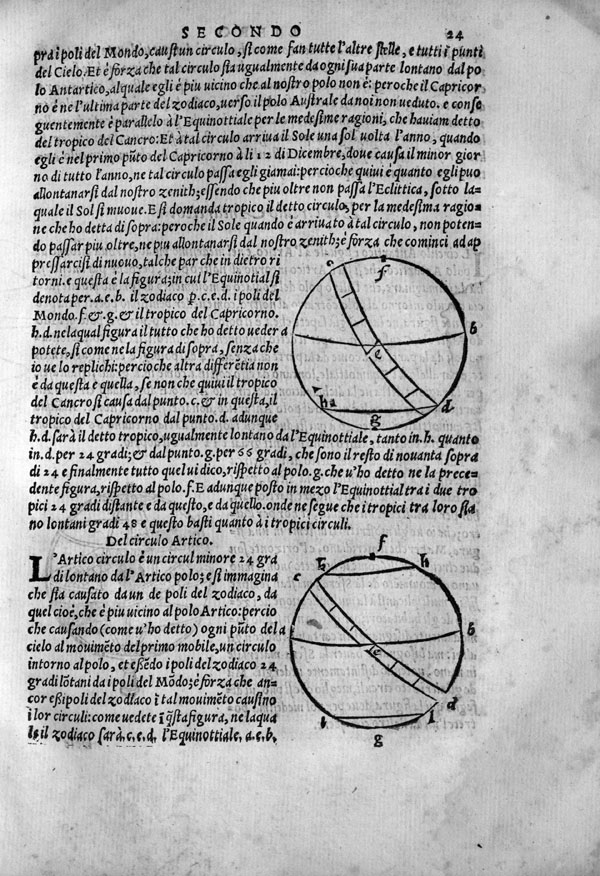 SECONDO 24
pra i poli del Mondo, causi un circulo, si come fan tutte l'altre stelle, e tutti i punti
del Cielo. Et è forza che tal circulo sia ugualmente da ogni sua parte lontano dal po
lo Antartico, al quale egli è piu uicino che al nostro polo non è: peroche il Capricor
no è ne l'ultima parte del zodiaco, uerso il polo Australe da noi non ueduto. e conse
guentemente è parallelo à l'Equinottiale per le medesime ragioni, che hauiam detto
del tropico del Cancro: Et à tal circulo arriua il Sole una sol uolta l'anno, quando
egli è nel primo pũto del Capricorno à li 12 di Dicembre, doue causa il minor gior
no di tutto l'anno, ne tal circulo passa egli giamai: percioche quiui è quanto egli puo
allontanarsi dal nostro zenith; essendo che piu oltre non passa l'Eclittica, sotto la
quale il Sol si muoue. E si domanda tropico il detto circulo, per la medesima ragio
ne che ho detta di sopra: peroche il Sole quando è arriuato à tal circulo, non poten
do passar piu oltre, ne piu allontanarsi dal nostro zenith; è forza che cominci ad ap
pressarcisi di nuouo, talche par che in dietro ri
torni. e questa è la figura; in cui l'Equinotial si
denota per. a.e.b. il zodiaco p. c.e.d. i poli del
Mondo. f. & g. & il tropico del Capricorno.
h.d. ne la qual figura il tutto che ho detto ueder
potete, si come ne la figura di sopra, senza che
io ue lo replichi: percioche altra differẽtia non
è da questa e quella, se non che quiui il tropico
del Cancro si causa dal punto. c. & in questa, il
tropico del Capricorno dal punto. d. adunque
h.d. sarà il detto tropico, ugualmente lontano da l'Equinottiale, tanto in. h. quanto
in. d. per 24 gradi; & dal punto. g. per 66 gradi, che sono il resto di nouanta sopra
di 24 e finalmente tutto quel ui dico, rispetto al polo. g. che u'ho detto ne la prece-
dente figura, rispetto al polo. f. E adunque posto in mezo l'Equinottial tra i due tro
pici 24 gradi distante e da questo, e da quello. onde ne segue che i tropici tra loro sia
no lontani gradi 48 e questo basti quanto à i tropici circuli.
c
f
a
b
e
h
d
g
Del circulo Artico.
L'Artico circulo è un circul minore 24 gra
di lontano da l'Artico polo; e si immagina
che sia causato da un de poli del zodiaco, da
quel cioè, che è piu uicino al polo Artico: percio
che causando (come u'ho detto) ogni pũto del
cielo al mouimẽto del primo mobile, un circulo
intorno al polo, et essẽdo i poli del zodiaco 24
gradi lõtani da i poli del Mõdo; è forza che an-
cor essi poli del zodiaco ĩ tal mouimẽto causino
i lor circuli: come uedete ĩ q̃sta figura, ne la qua
le il zodiaco sarà. c.e.d. l'Equinottiale. a.e.b.
f
h
c
a
b
e
d
l
g